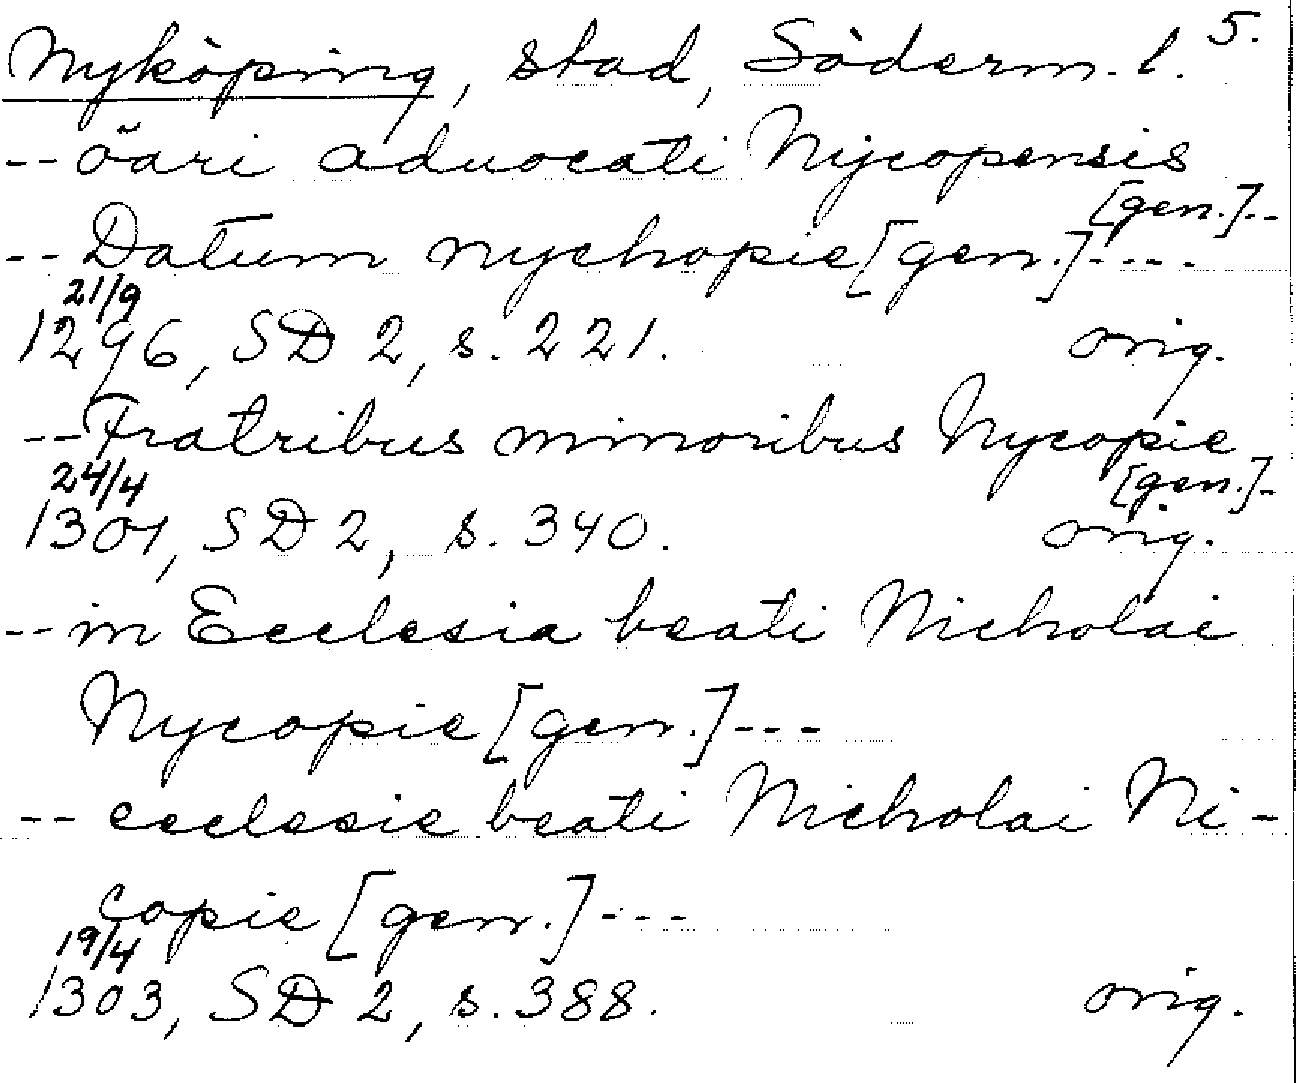 Nyköping, stad, Söderm. l. 5.
-- öari aduocati Nycopensis
[gen.]--
-- Datum nychopie [gen.]----
21/9
1296, SD 2, s. 221. orig.
-- Fratribus minoribus Nycopie
[gen.]-
24/4
1301, SD 2, s. 340. orig.
-- in Ecclesia beati Nicholai
Nycopie [gen.]---
-- ecclesie beati Nicholai Ni-
copie [gen.]---
19/4
1303, SD 2, s. 388. orig.